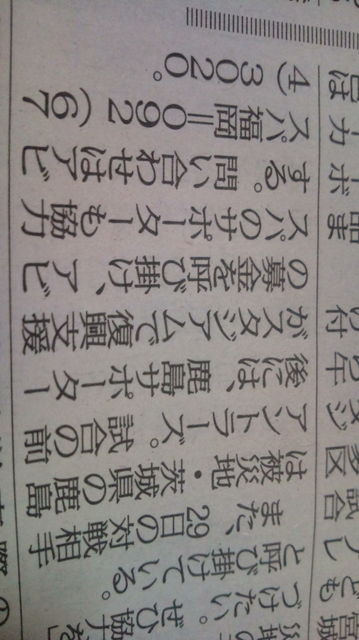 づけたい。ぜひ協力を
と呼び掛けている。
また、29日の対戦相手
は被災地・茨城県の鹿島
アントラーズ。試合の前
後には、鹿島サポーター
がスタジアムで復興支援
の募金を呼び掛け、アビ
スパのサポーターも協力
する。問い合わせはアビ
スパ福岡=092(67
4)3020。